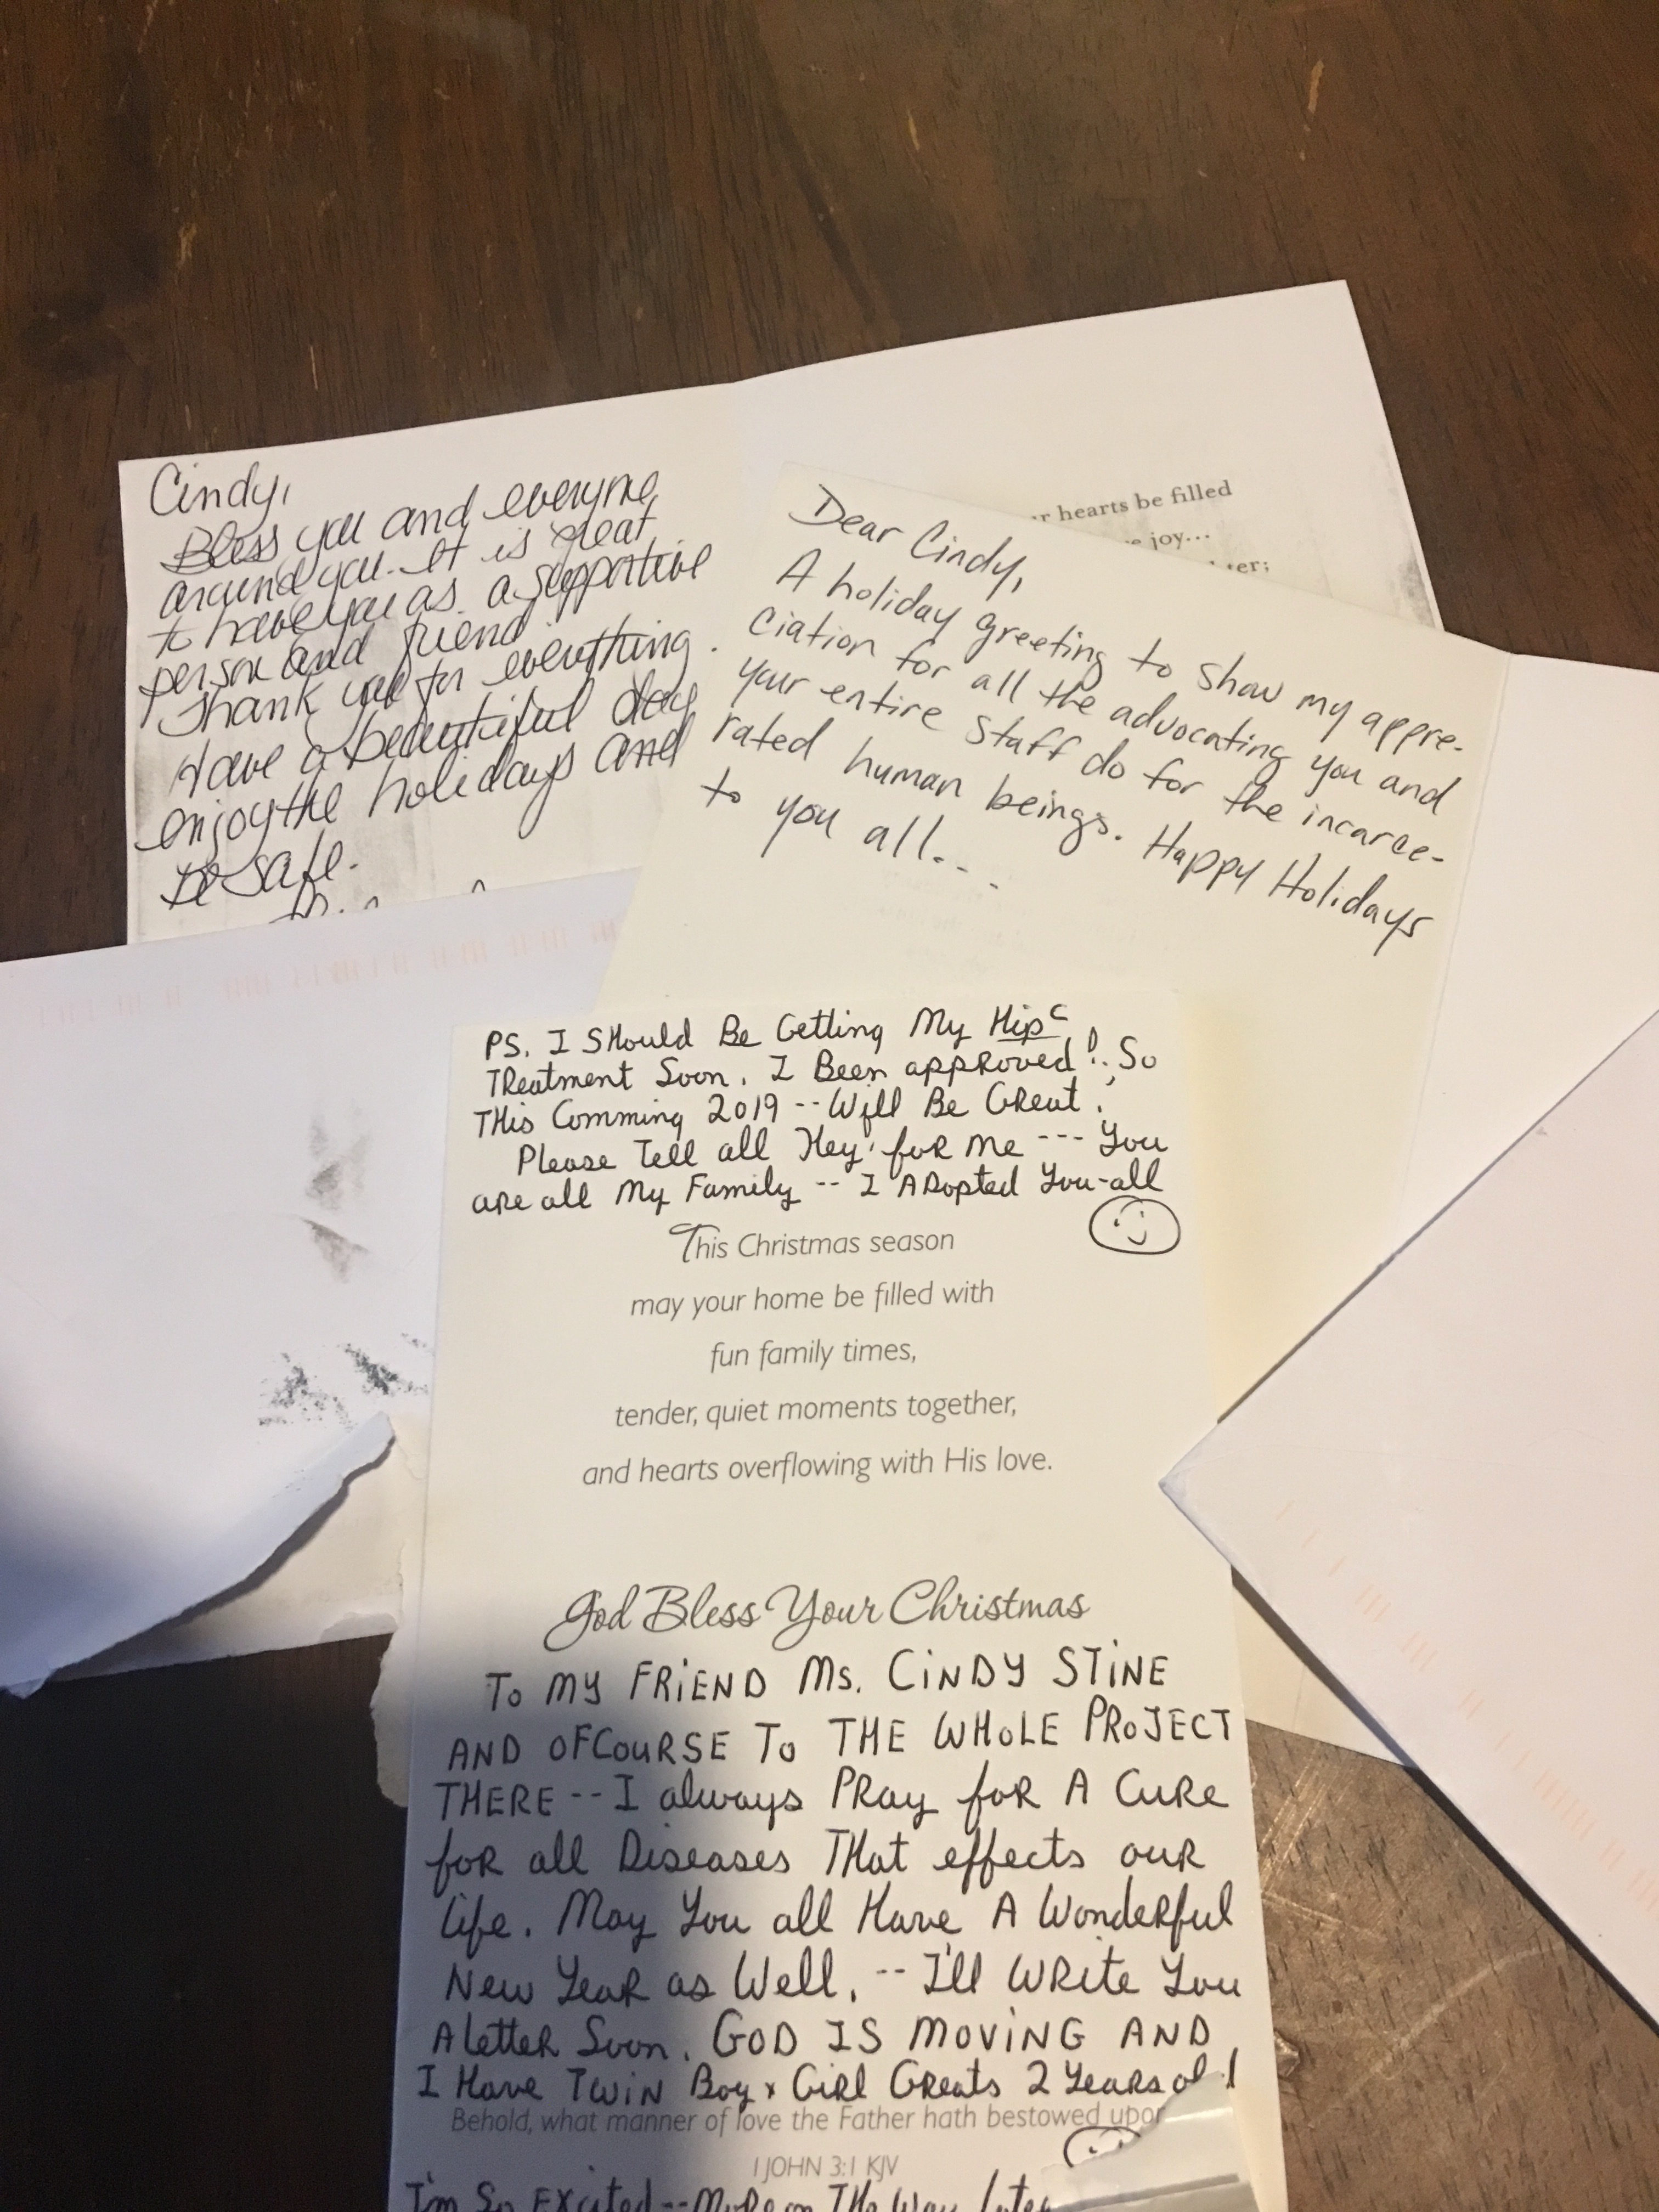 Cindy,
Bless you and everyone
around you. It is great
to have you as a supportive
person and friend.
Thank you for everything.
Have a beautiful day
enjoy the holidays and
Be safe.
r hearts be filled
joy...
ter;
Dear Cindy,
A holiday greeting to show my appre-
ciation for all the advocating you and
your entire staff do for the incarce-
rated human beings. Happy Holidays
to you all...
PS. I SHould Be Getting My Hip C
TReatment Soon. I Been appRoved! So
THis Comming 2019 -- Will Be GReat!
Please Tell all Hey foR Me --- You
aRe all My Family -- I ADopted You-all
This Christmas season
may your home be filled with
fun family times,
tender, quiet moments together,
and hearts overflowing with His love.
God Bless Your Christmas
To MY FRiEND Ms. CiNDY STiNE
AND OFCOURSE To THE WHoLE PRoJECT
THERE -- I always PRay foR A CuRe
foR all Diseases THat effects ouR
life. May You all Have A WondeRful
New YeaR as Well. -- I'll WRite You
A letteR Soon. GOD IS MOViNG AND
I Have TWiN Boy & GiRl GReats 2 Years old
Behold, what manner of love the Father hath bestowed upon
I JOHN 3:1 KJV
I'm So Excited -- MoRe on THe Way